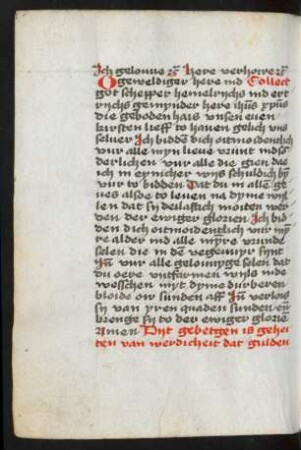 Ich gelouve etc Here verhoire etc
O geweldiger here ind Collect
got schepper hemelrychs ind ert
rychs gemynder here ihus xpus
die geboden hais unsen even
kirsten lieff to haven gelich uns
selver Ich bidden dich oitmoidenclich
vur alle myn lieve vrunt indson
derlichen vur alle die gien dae
ich in eynicher wys schuldich byn
vur to bidden Dat du in allen ge
ves alsoe to leven na dyme wyl
len dat sy deilaftich moiten wer
den der ewiger glorien Ich bid
den dich oitmoidenclich vur my
re alder ind alle myre vrunde
selen die in dem vegevuyr synt
Ind vur alle geloivyge selen dat
du oere untfarmen wils inde
wesschen myt dyme durberen
bloide oir sunden aff Ind verlois
sy van yren quaden sunden en
brenge sy to der ewiger glorien
Amen Dyt gebetgen is gehei
ten van werdicheit dat gulden